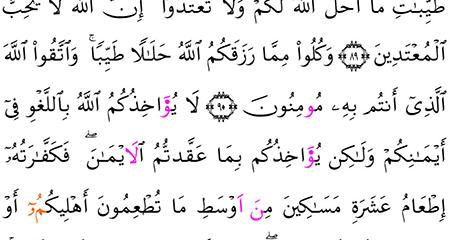 طَيِّبَٰتِ مَا أَحَلَّ ٱللَّهُ لَكُمْ وَلَا تَعْتَدُوٓا۟ إِنَّ ٱللَّهَ لَا يُحِبُّ
ٱلْمُعْتَدِينَ ۝٨٩ وَكُلُوا۟ مِمَّا رَزَقَكُمُ ٱللَّهُ حَلَٰلًا طَيِّبًا ۚ وَٱتَّقُوا۟ ٱللَّهَ
ٱلَّذِىٓ أَنتُم بِهِۦ مُومِنُونَ ۝٩٠ لَا يُؤَاخِذُكُمُ ٱللَّهُ بِٱللَّغْوِ فِىٓ
أَيْمَٰنِكُمْ وَلَٰكِن يُؤَاخِذُكُم بِمَا عَقَّدتُّمُ ٱلَايْمَٰنَ ۖ فَكَفَّٰرَتُهُۥٓ
إِطْعَامُ عَشَرَةِ مَسَٰكِينَ مِنَ اَوْسَطِ مَا تُطْعِمُونَ أَهْلِيكُمُۥٓ أَوْ